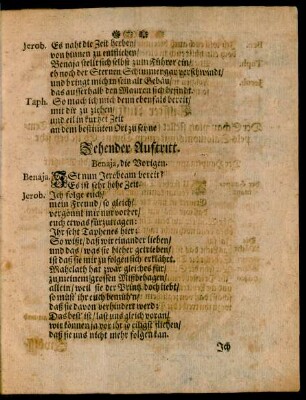 Jerob. Es naht die Zeit herbey/
von hinnen zu entfliehen/
Benaja stellt sich selbst zum Führer ein/
eh noch der Sternen Schimmer gar verschwindt/
und bringt mich in sein alt Gebäu/
das ausserhalb den Mauren sich befindt.
Taph. So mach ich mich denn ebenfals bereit/
mit dir zu ziehen/
und eil in kurtzer Zeit
an dem bestimten Ort zu seyn.
Zehender Auftritt.
Benaja, die Vorigen.
Benaja. Ist nun Jerobeam bereit?
Es ist sehr hohe Zeit.
Jerob. Ich folge euch/
mein Freund/ so gleich/
vergönnt mir nur vorher/
euch etwas fürzutragen:
Ihr seht Taphenes hier:
So wißt/ daß wir einander lieben/
und daß/ was sie bißher getrieben/
ist daß sie mir zu folgen sich erklährt.
Mahelath hat zwar gleiches für/
zu meinem grossen Mißbehagen/
allein/ weil sie der Printz doch liebt/
so müst ihr euch bemühn/
daß sie davon verhindert werd:
Das best ist/ last uns gleich voran/
wir können ja vor ihr so eiligst fliehen/
daß sie uns nicht mehr folgen kan.
Ich